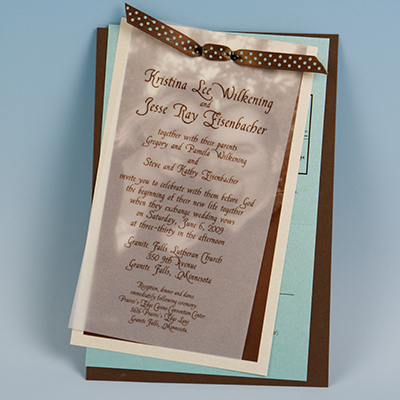 Kristina Lee Wilkening
and
Jesse Ray Eisenbacher
together with their parents
Gregory and Pamela Wilkening
and
Steve and Kathy Eisenbacher
invite you to celebrate with them before God
the beginning of their new life together
when they exchange wedding vows
on Saturday, June 6, 2009
at three-thirty in the afternoon
Granite Falls Lutheran Church
350 9th Avenue
Granite Falls, Minnesota
Reception, dinner and dance
immediately following ceremony
Prairie's Edge Casino Convention Center
5616 Prairie's Edge Lane
Granite Falls, Minnesota